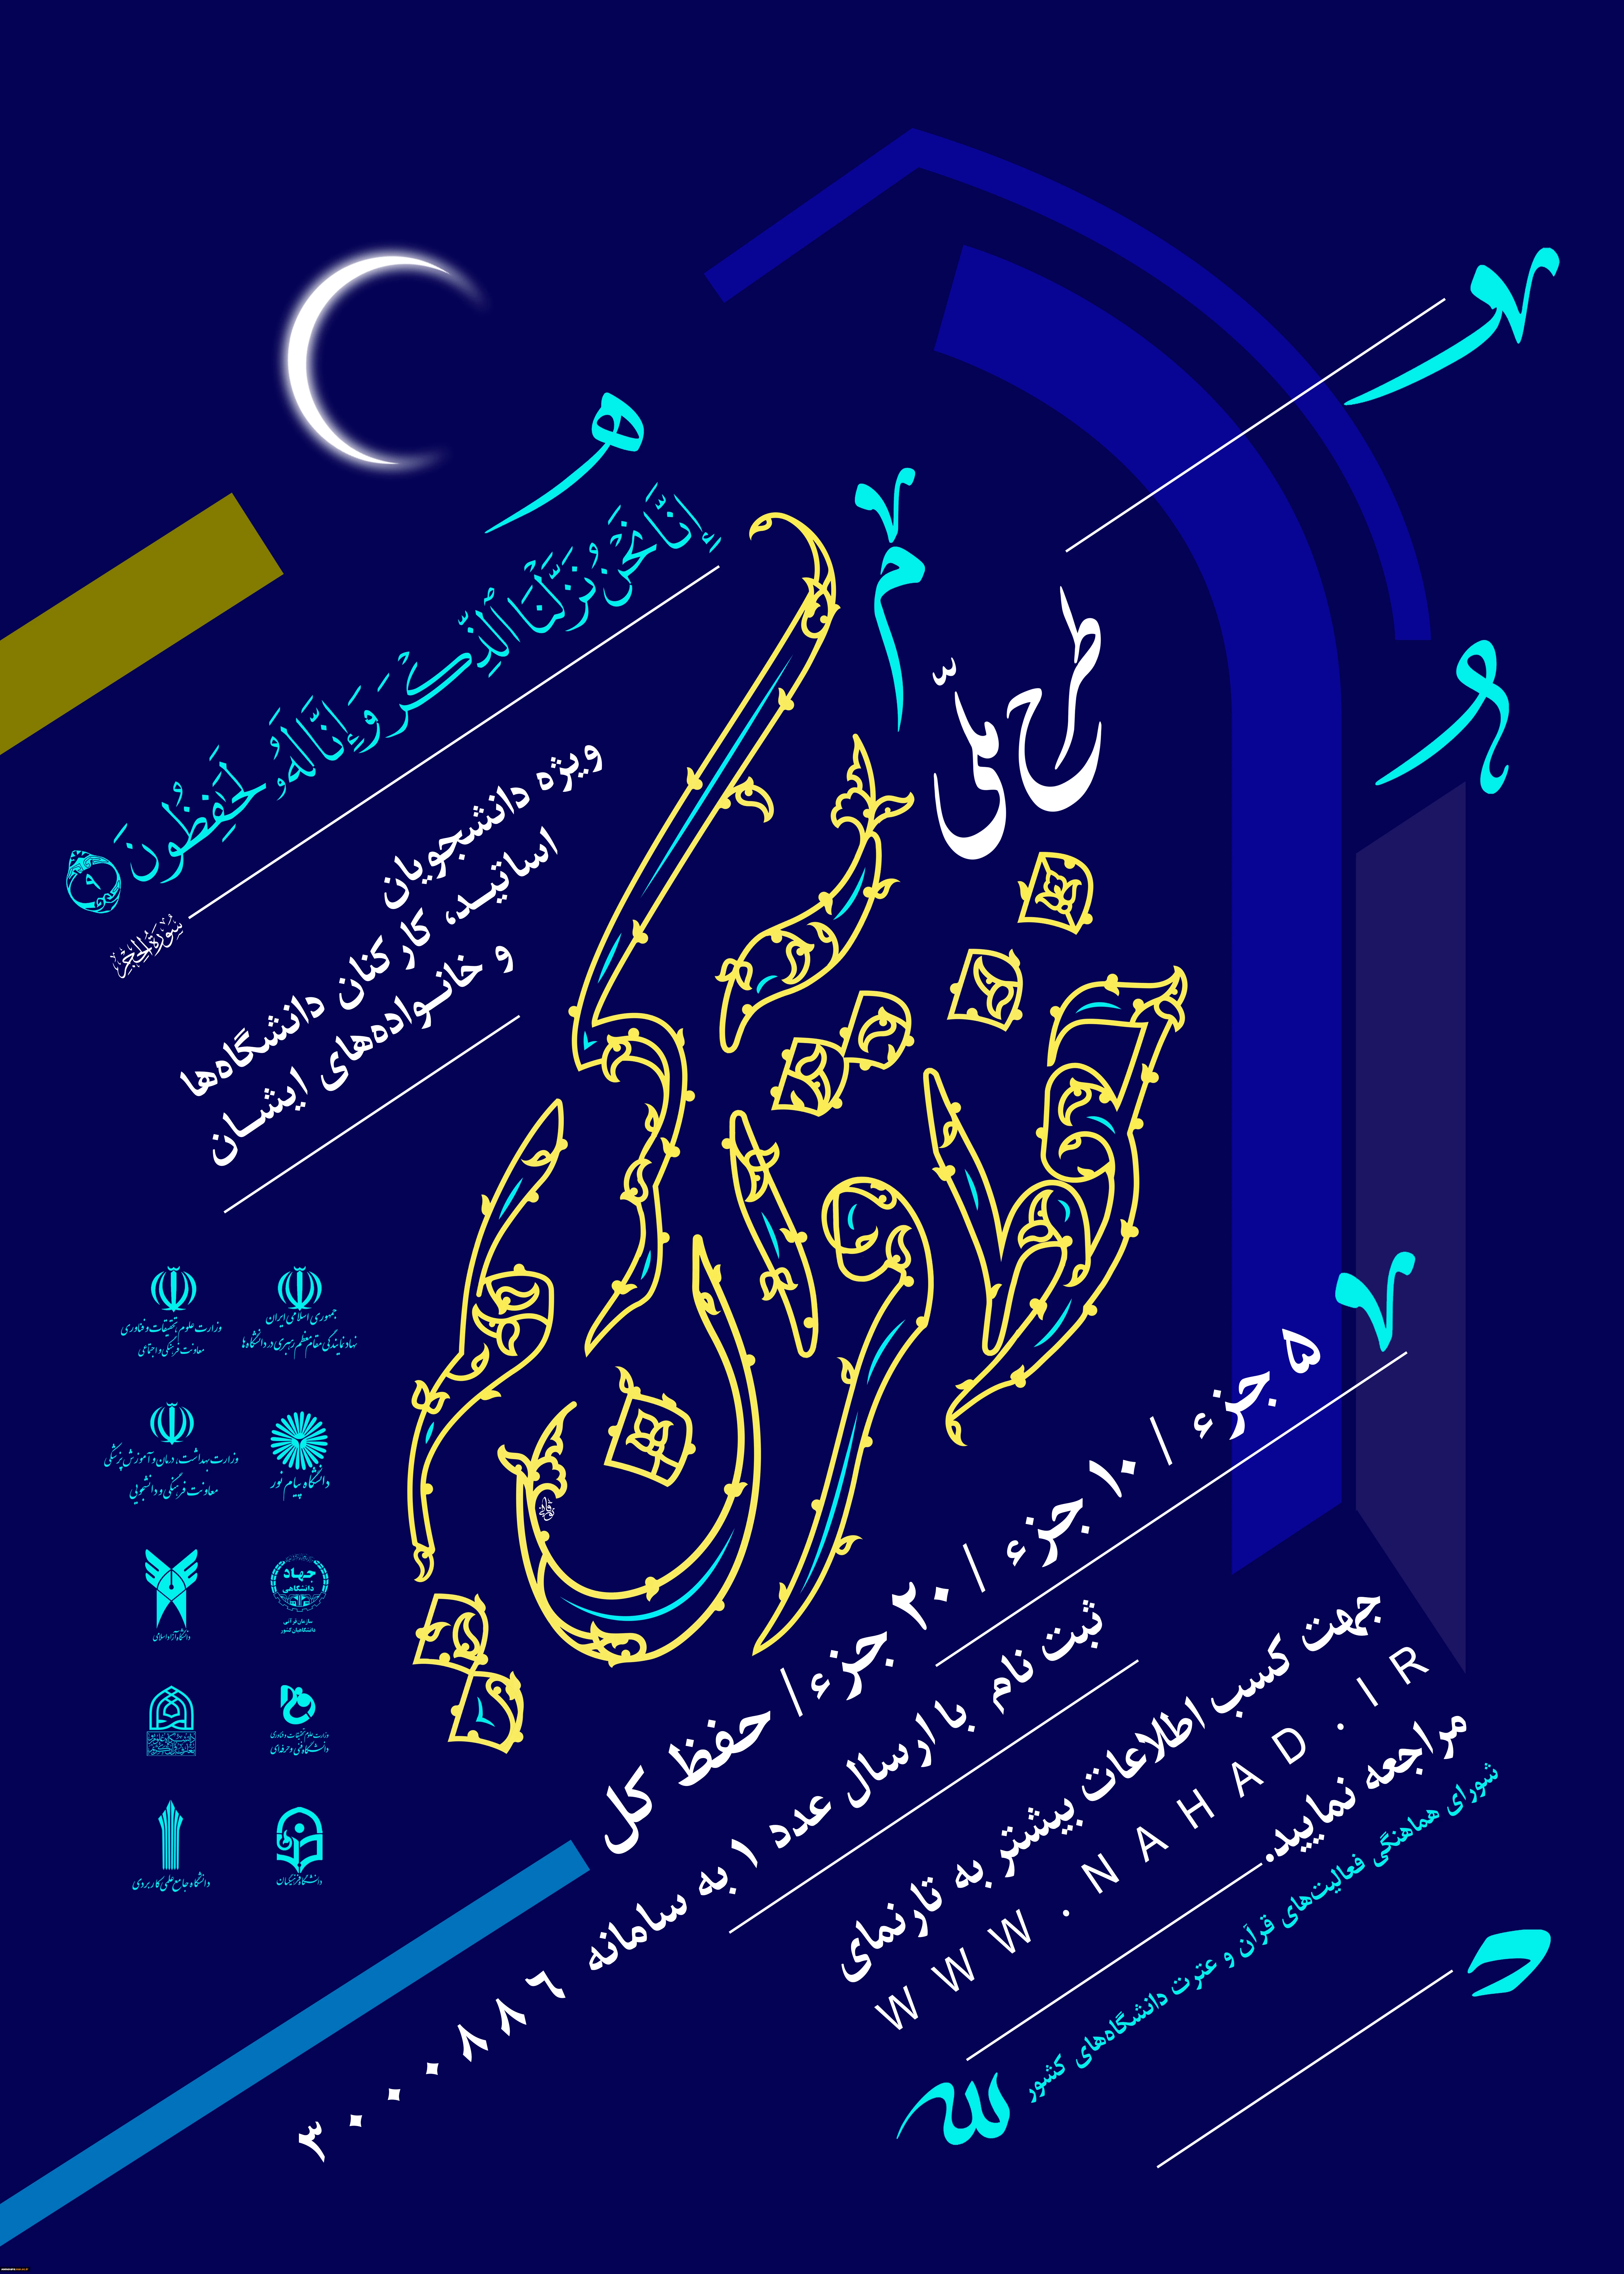 إِنَّا نَحْنُ نَزَّلْنَا ٱلذِّكْرَ وَإِنَّا لَهُۥ لَحَٰفِظُونَ ٩
سورة الحجر
طرح ملّی
حفظ قرآن کریم
ویژه دانشجویان
اساتیـد، کارکنان دانشگاه‌ها
و خانـواده‌های ایشـان
۵ جزء / ۱۰ جزء / ۲۰ جزء / حفظ کل
ثبت نام با ارسال عدد ۱ به سامانه ۳۰۰۰۰۸۸۶
جهت کسب اطلاعات بیشتر به تارنمای
WWW.NAHAD.IR
مراجعه نمایید.
شورای هماهنگی فعالیت‌های قرآن و عترت دانشگاه‌های کشور
جمهوری اسلامی ایران
نهاد نمایندگی مقام معظم رهبری در دانشگاه‌ها
وزارت علوم، تحقیقات و فناوری
معاونت فرهنگی و اجتماعی
دانشگاه پیام نور
وزارت بهداشت، درمان و آموزش پزشکی
معاونت فرهنگی و دانشجویی
جهاد
دانشگاهی
سازمان قرآنی
دانشگاهیان کشور
دانشگاه آزاد اسلامی
وزارت علوم، تحقیقات و فناوری
دانشگاه فنی و حرفه‌ای
دانشگاه فرهنگیان
دانشگاه جامع علمی کاربردی